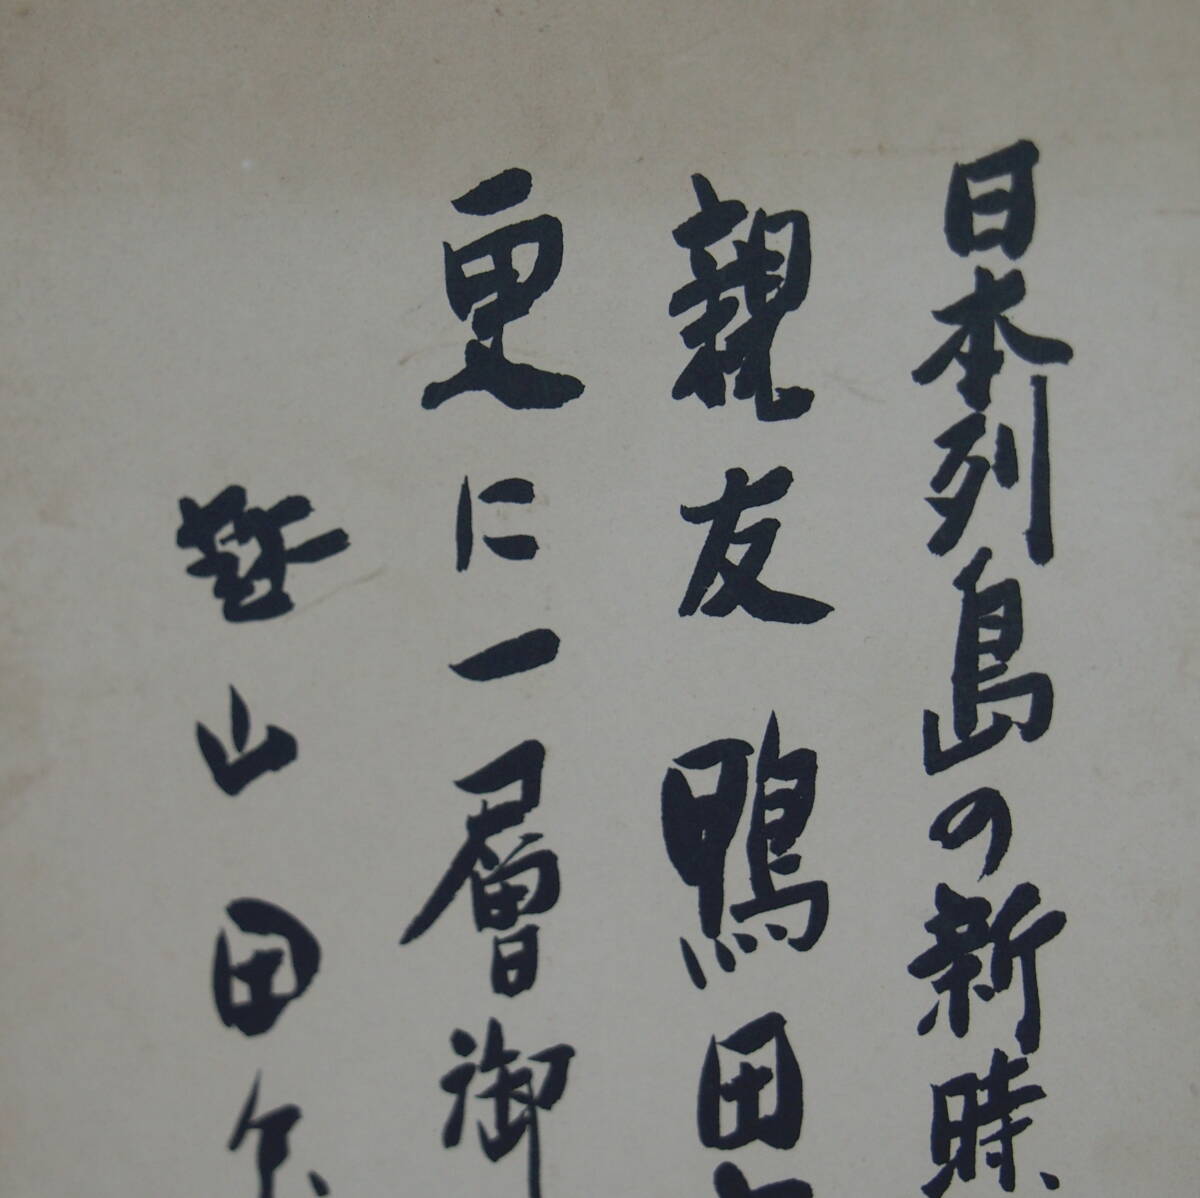 日本列島の新時
親友鴨田
更に一層御
山田